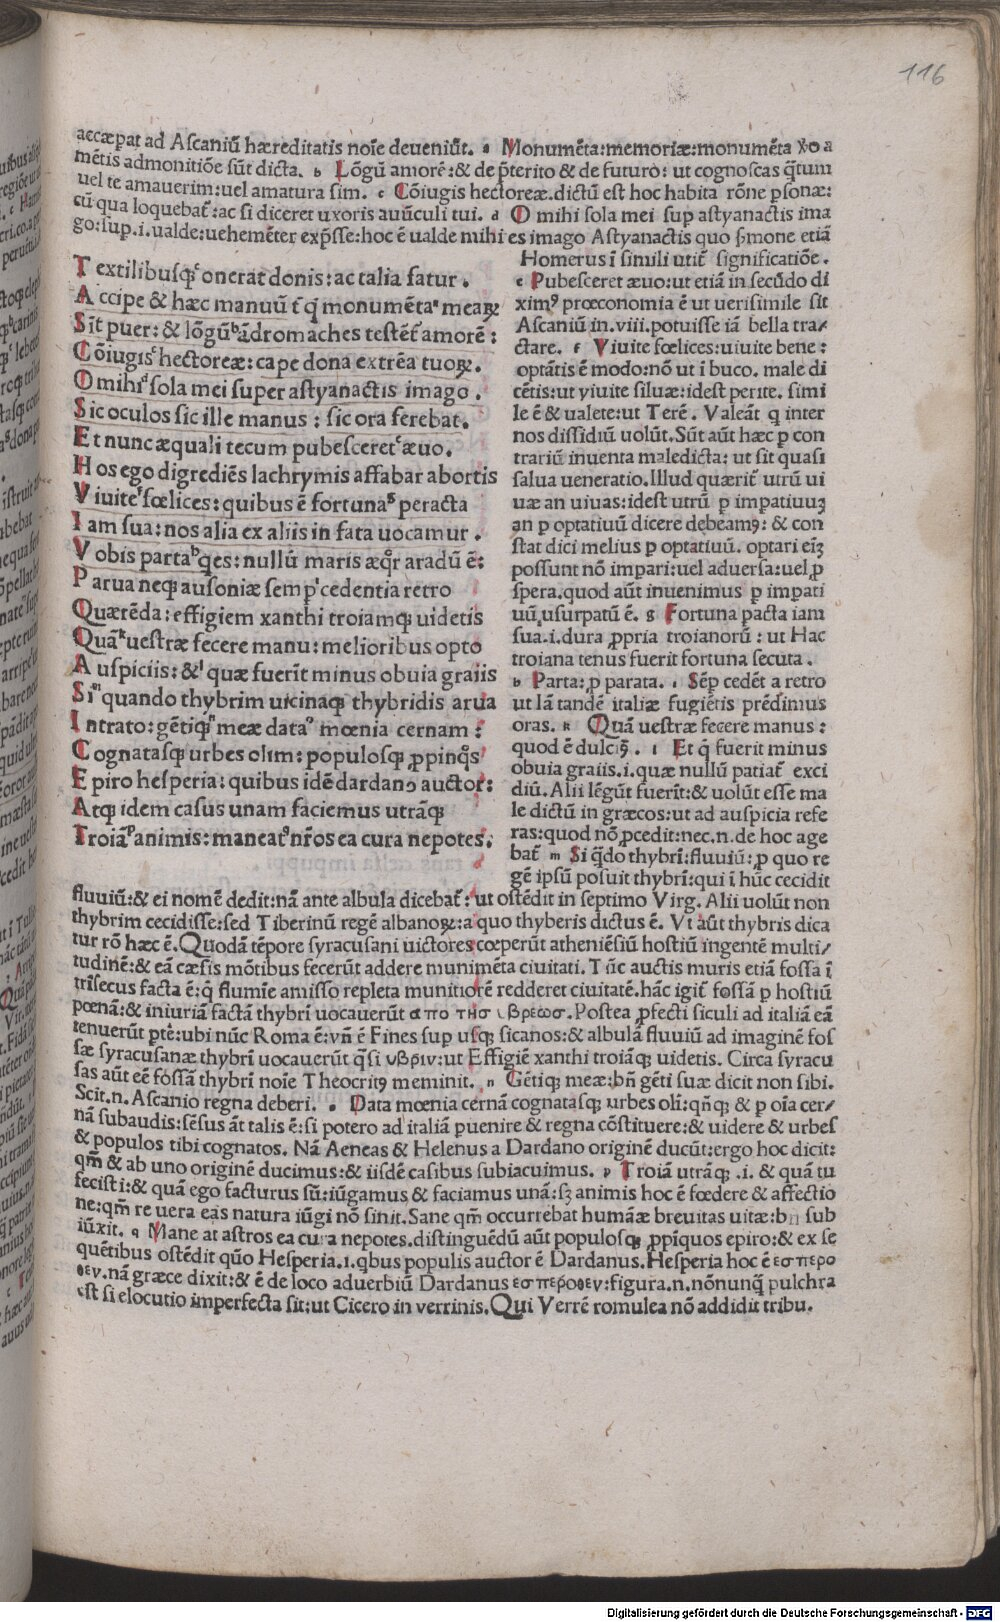 116
accæpat ad Ascaniū hæreditatis noīe deueniūt. a Monumēta:memoriæ:monumēta ꝟo a
mētis admonitiōe sūt dicta. b Lōgū amorē:& de p̄terito & de futuro: ut cognoscas q̄tum
uel te amauerim:uel amatura sim. c Cōiugis hectoreæ.dictū est hoc habita rōne ꝑsonæ:
cū qua loquebat̄:ac si diceret uxoris auūculi tui. d O mihi sola mei suꝑ astyanactis ima
go:sup.i.ualde:uehemēter exp̄sse:hoc ē ualde mihi es imago Astyanactis quo s̄mone etiā
Homerus ī simili utit̄ significatiōe.
T extilibusq; onerat donis: ac talia fatur.
A ccipe & hæc manuū t̄ q̄ monumēta meaꝝ
S īt puer: & lōgū ādromaches testēt amorē:
C ōiugis hectoreæ: cape dona extrēa tuoꝝ.
O mihi sola mei super astyanactis imago.
S ic oculos sic ille manus: sic ora ferebat.
E t nunc æquali tecum pubesceret æuo.
H os ego digrediēs lachrymis affabar abortis
V iuite fœlices: quibus ē fortuna peracta
I am sua: nos alia ex aliis in fata uocamur.
V obis parta q̇es: nullū maris æq̄r aradū ē:
P arua neq; ausoniæ semꝑ cedentia retro
Quærēda: effigiem xanthi troiamq; uidetis
Quā uestræ fecere manu: melioribus opto
A uspiciis: & quæ fuerīt minus obuia graiis
S i quando thybrim uicinaq; thybridis arua
I ntrato: gētiq; meæ data mœnia cernam:
C ognatasq; urbes olim: populosq; ꝓpinq̊s
E piro hesperia: quibus idē dardanꝰ auctor:
A tq; idem casus unam faciemus utrāq;
T roiā animis: maneat nr̄os ea cura nepotes.
e Pubesceret æuo:ut etiā in secūdo di
ximꝰ prœconomia ē ut uerisimile sit
Ascaniū in.viii.potuisse iā bella tra/
ctare. f Viuite fœlices:uiuite bene:
optātis ē modo:nō ut ī buco. male di
cētis:ut yiuite siluæ:idest perite. simi
le ē & ualete:ut Terē. Valeāt q inter
nos dissidiū uolūt.Sūt aūt hæc ꝑ con
trariū inuenta maledicta: ut sit quasi
salua ueneratio.Illud quærit̄ utrū ui
uæ an uiuas:idest utrū ꝑ impatiuuꝫ
an ꝑ optatiuū dicere debeamꝰ: & con
stat dici melius ꝑ optatiuū. optari eīꝫ
possunt nō impari:uel aduersa:uel ꝓ
spera.quod aūt inuenimus ꝑ impati
uū,usurpatū ē. g Fortuna ꝑacta iam
sua.i.dura ꝓpria troianorū: ut Hac
troiana tenus fuerit fortuna secuta.
h Parta: ꝓ parata. i Sēꝑ cedēt a retro
ut Iā tandē italiæ fugiētis prēdimus
oras. k Quā uestræ fecere manus:
quod ē dulciꝰ. l Et q̄ fuerit minus
obuia graiis.i.quæ nullū patiat̄ exci
diū. Alii lēgūt fuerīt:& uolūt esse ma
le dictū in græcos:ut ad auspicia refe
ras:quod nō ꝓcedit:nec.n.de hoc age
bat̄ m Si q̄do thybrī:fluuiū: ꝓ quo re
gē ipsū posuit thybrī:qui ī hūc cecidit
fluuiū:& ei nomē dedit:nā ante albula dicebat̄: ut ostēdit in septimo Virg. Alii uolūt non
thybrim cecidisse:sed Tiberinū regē albanoꝝ:a quo thyberis dictus ē. Vt aūt thybris dica
tur rō hæc ē.Quodā tēpore syracusani uictores cœperūt atheniēsiū hostiū ingentē multi/
tudinē:& eā cæsis mōtibus fecerūt addere munimēta ciuitati. Tūc auctis muris etiā fossa ī
trīsecus facta ē:q̄ flumīe amisso repleta munitiorē redderet ciuitatē.hāc igit̄ fossā ꝑ hostiū
pœnā:& iniuriā factā thybrī uocauerūt απο τησ υβρεωσ.Postea ꝓfecti siculi ad italiā eā
tenuerūt ptē:ubi nūc Roma ē:vn̄ ē Fines sup usq; sicanos:& albulā fluuiū ad imaginē fos
sæ syracusanæ thybrī uocauerūt q̄si υβριν:ut Effigiē xanthi troiāq; uidetis. Circa syracu
sas aūt eē fossā thybrī noīe Theocritꝰ meminit. n Gētiq; meæ:bn̄ gēti suæ dicit non sibi.
Scit.n.Ascanio regna deberi. o Data mœnia cernā cognatasq; urbes olī:qn̄q; & ꝑ oīa cer/
nā subaudis:sēsus āt talis ē:si potero ad italiā ꝑuenire & regna cōstituere:& uidere & urbes
& populos tibi cognatos. Nā Aeneas & Helenus a Dardano originē ducūt:ergo hoc dicit:
qm̄ & ab uno originē ducimus:& iisdē casibus subiacuimus. p Troiā utrāq; .i. & quā tu
fecisti:& quā ego facturus sū:iūgamus & faciamus unā:sꝫ animis hoc ē fœdere & affectio
ne:qm̄ re uera eas natura iūgi nō sinit.Sane qm̄ occurrebat humāæ breuitas uitæ:bn̄ sub
iūxit. q Mane at astros ea cura nepotes.distinguēdū aūt populosq; ꝓpīquos epiro:& ex se
quētibus ostēdit quō Hesperia.i.qbus populis auctor ē Dardanus.Hesperia hoc ē εσπερο
θεν.nā græce dixit:& ē de loco aduerbiū Dardanus εσπεροθεν:figura.n.nōnunq̄ pulchra
est si elocutio imperfecta sit:ut Cicero in verrinis.Qui Verrē romulea nō addidit tribu.
Digitalisierung gefördert durch die Deutsche Forschungsgemeinschaft - DFG